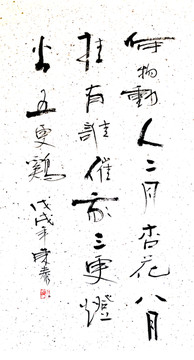 何物動人二月杏花八月
桂有誰催我三更燈
火五更鷄
戊戌年